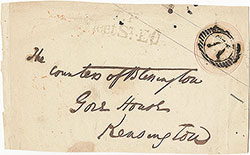 The
Countess of Blessington
Gore House
Kensington